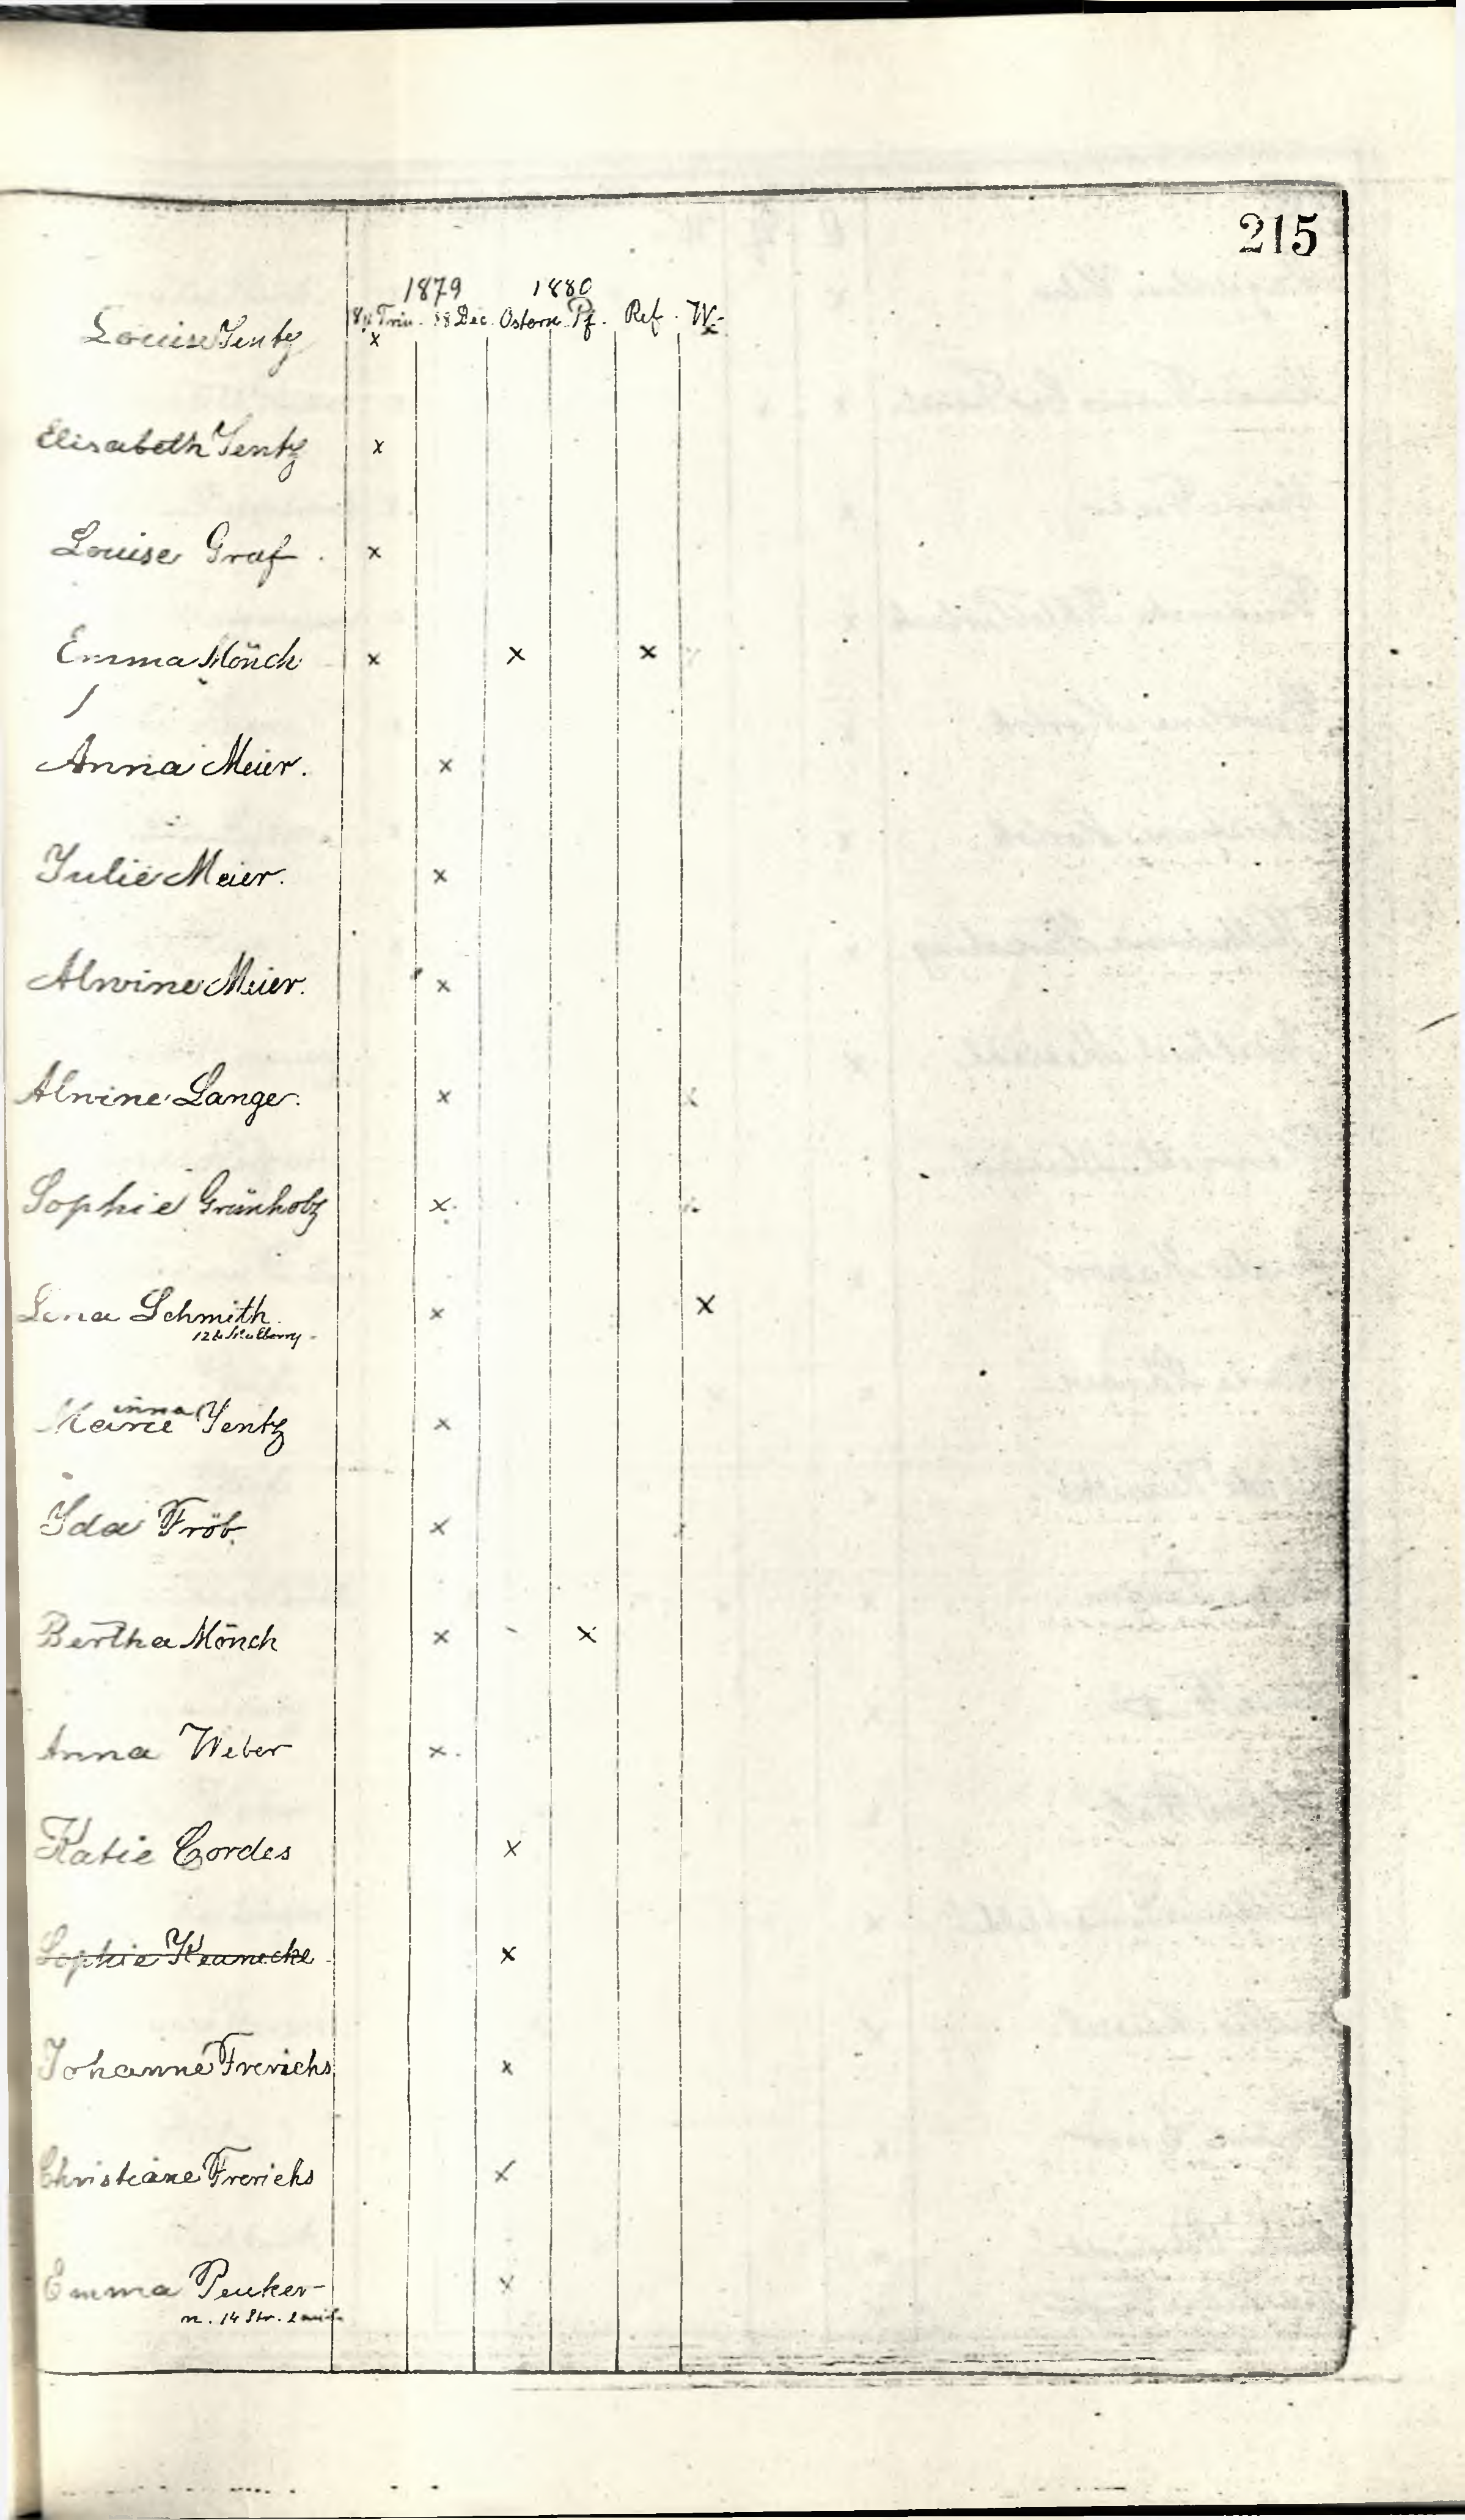 215
1879 1880
Trin. Dec. Ostern Pf. Ref. W.
Louise Jentz x
Elisabeth Jentz x
Louise Graf. x
Emma Mönch x x x
Anna Meier. x
Julie Meier. x
Alwine Meier. x
Alwine Lange. x
Sophie Grünholz x
Lena Schmith. x x
Mulberry
inna
Jentz x
Ida Fröb. x
Bertha Mönch x x
Anna Weber x
Katie Cordes x
Sophie x
Johanne Frerichs x
Christiane Frerichs x
Emma Peuker x
n. 14 Str.